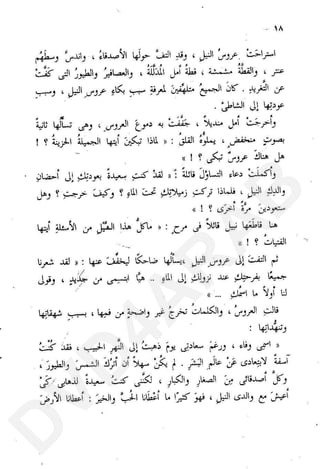 ١٨ —
استراحَتْ عروسُ النيلِ ، وقدِ التفَّ حولَها الأصدقاءُ ، واندسَّ وسطَهم
عنتر ، والقطةُ مشمشة ، قطةُ أمل المُدَلَّلة ، والعصافيرُ والطيورُ التى كفَّتْ
عن التغريدِ . كانَ الجميعُ متلهفينَ لمعرفةِ سببِ بكاءِ عروسِ النيلِ ، وسببِ
عودتِها إلى الشاطئِ .
وأخرجَتْ أمل منديلاً ، جَفَّفَتْ به دموعَ العروسِ ، وهى تسألُها ثانيةً
بصوتٍ منخفضٍ ، يملؤهُ القلقُ : « لماذا تبكينَ أيتها الجميلةُ الحزينةُ ؟ !
هل هناكَ عروسٌ تبكى ؟ ! »
وأكملَتْ دعاء التساؤلَ قائلةً : « لقدْ كنتِ سعيدةً بعودتِكِ إلى أحضانِ
والدِكِ النيلِ ، فلماذا تركتِ زميلاتِكِ تحتَ الماءِ ؟ وكيفَ خرجتِ ؟ وهل
ستعودينَ مرةً أخرَى ؟ ! »
هنا قاطَعَها نبيل قائلاً فى مرحٍ : « ماكلُّ هذا السَّيْلِ من الأسئلةِ أيتها
الفتياتُ ؟ ! »
ثم التفتَ إلى عروسِ النيلِ ، يسألُها ضاحكًا ليخفِّفَ عنها : « لقد شعرنا
جميعًا بفرحتِكِ عند نزولِكِ إلى الماءِ .. هيَّا ابتسمى من جديدٍ ، وقولى
لنا أولاً ما اسمُكِ ... »
قالتِ العروسُ ، والكلماتُ تخرجُ غيرَ واضحةٍ من فمِها ، بسببِ شهقاتِها
وتنهُّداتِها :
« اسمى وفاء ، ورغمَ سعادتى يومَ ذهبتُ إلى النهرِ الحبيبِ ، فقدْ كنتُ
آسفةً لابتعادى عَنْ عالمِ البَشَرِ . لم يكُنْ سهلاً أن أتركَ الشمسَ والطيورَ ،
وكلَّ أصدقائى منَ الصغارِ والكبارِ ، لكنَّنى كنتُ سعيدةً لذهابى كَىْ
أعيشَ مع والدى النيلِ ، فهوَ كثيرًا ما أعْطَانا الحبَّ والخيرَ : أعطانا الأرضَ